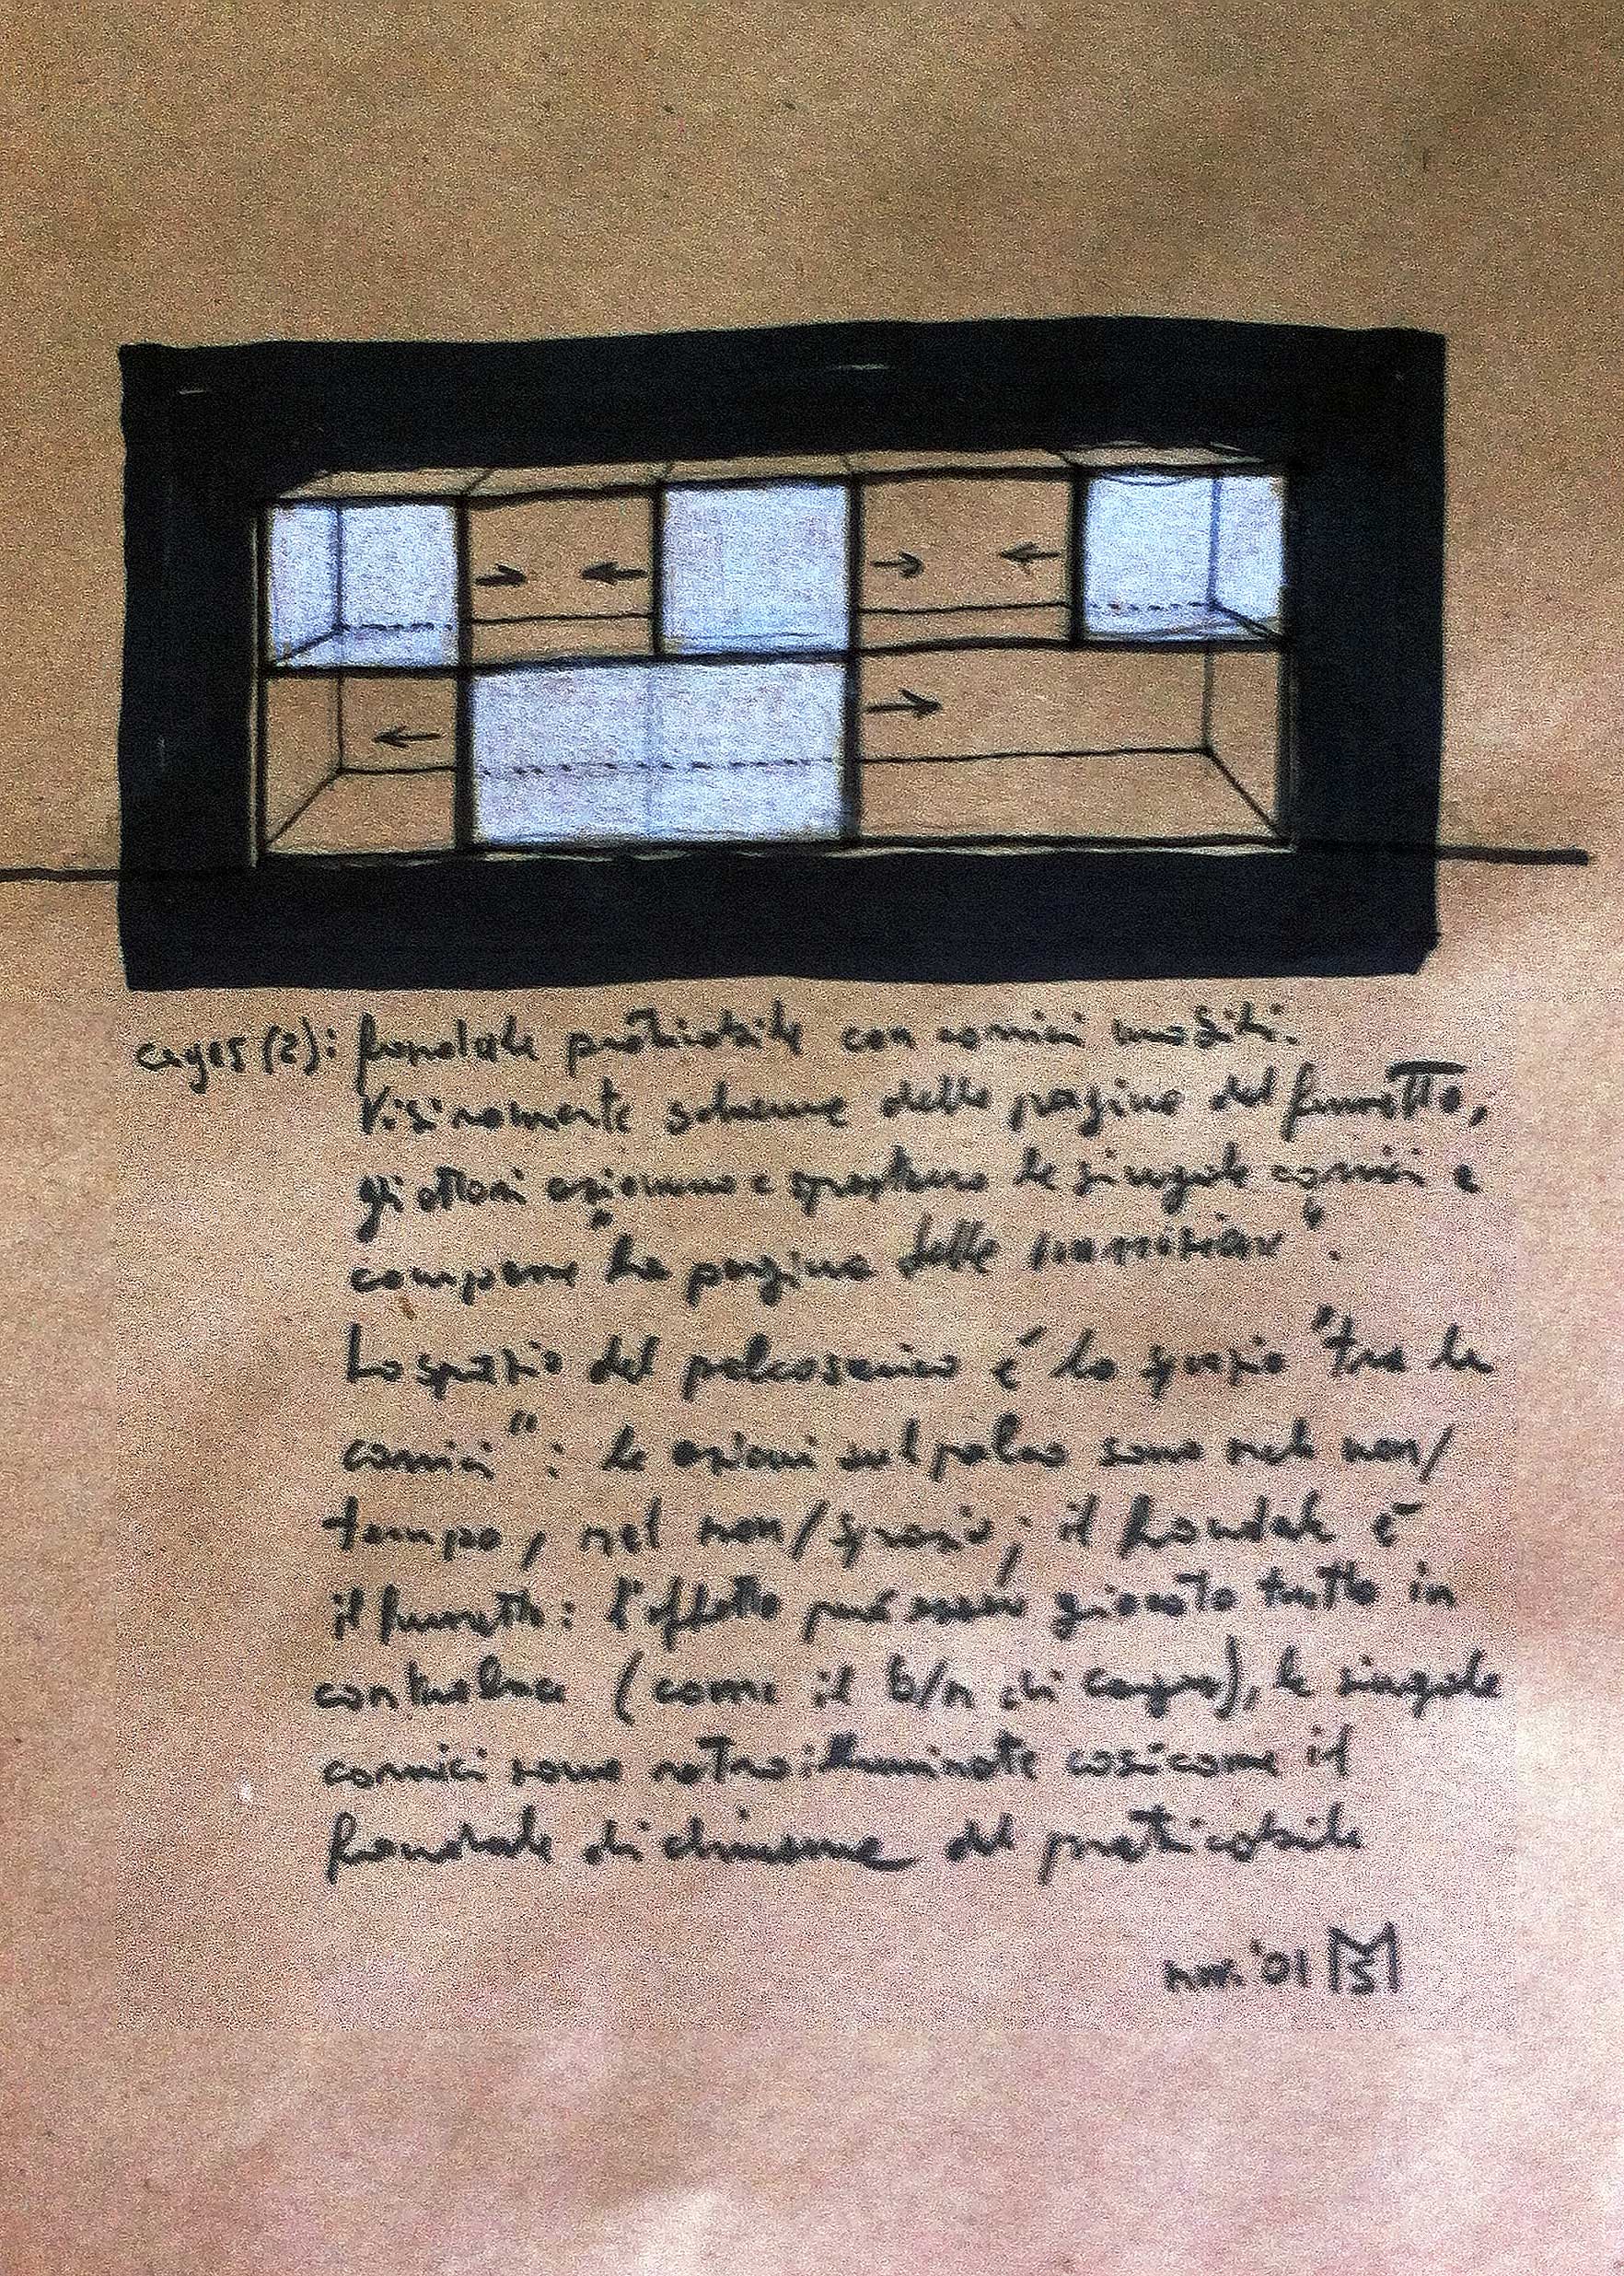 cages (2): fondale praticabile con cornici mobili.
Visivamente schema delle pagine del fumetto,
gli attori azionano e spostano le singole cornici e
compone "la pagina delle transizioni".
Lo spazio del palcoscenico é lo spazio "tra le
cornici": le azioni sul palco sono nel non/
tempo, nel non/spazio; il fondale é
il fumetto: l'effetto può essere giocato tutto in
controluce (come il b/n di cages), le singole
cornici sono retroilluminate cosi come il
fondale di chiusura del praticabile
nov. '01 MS